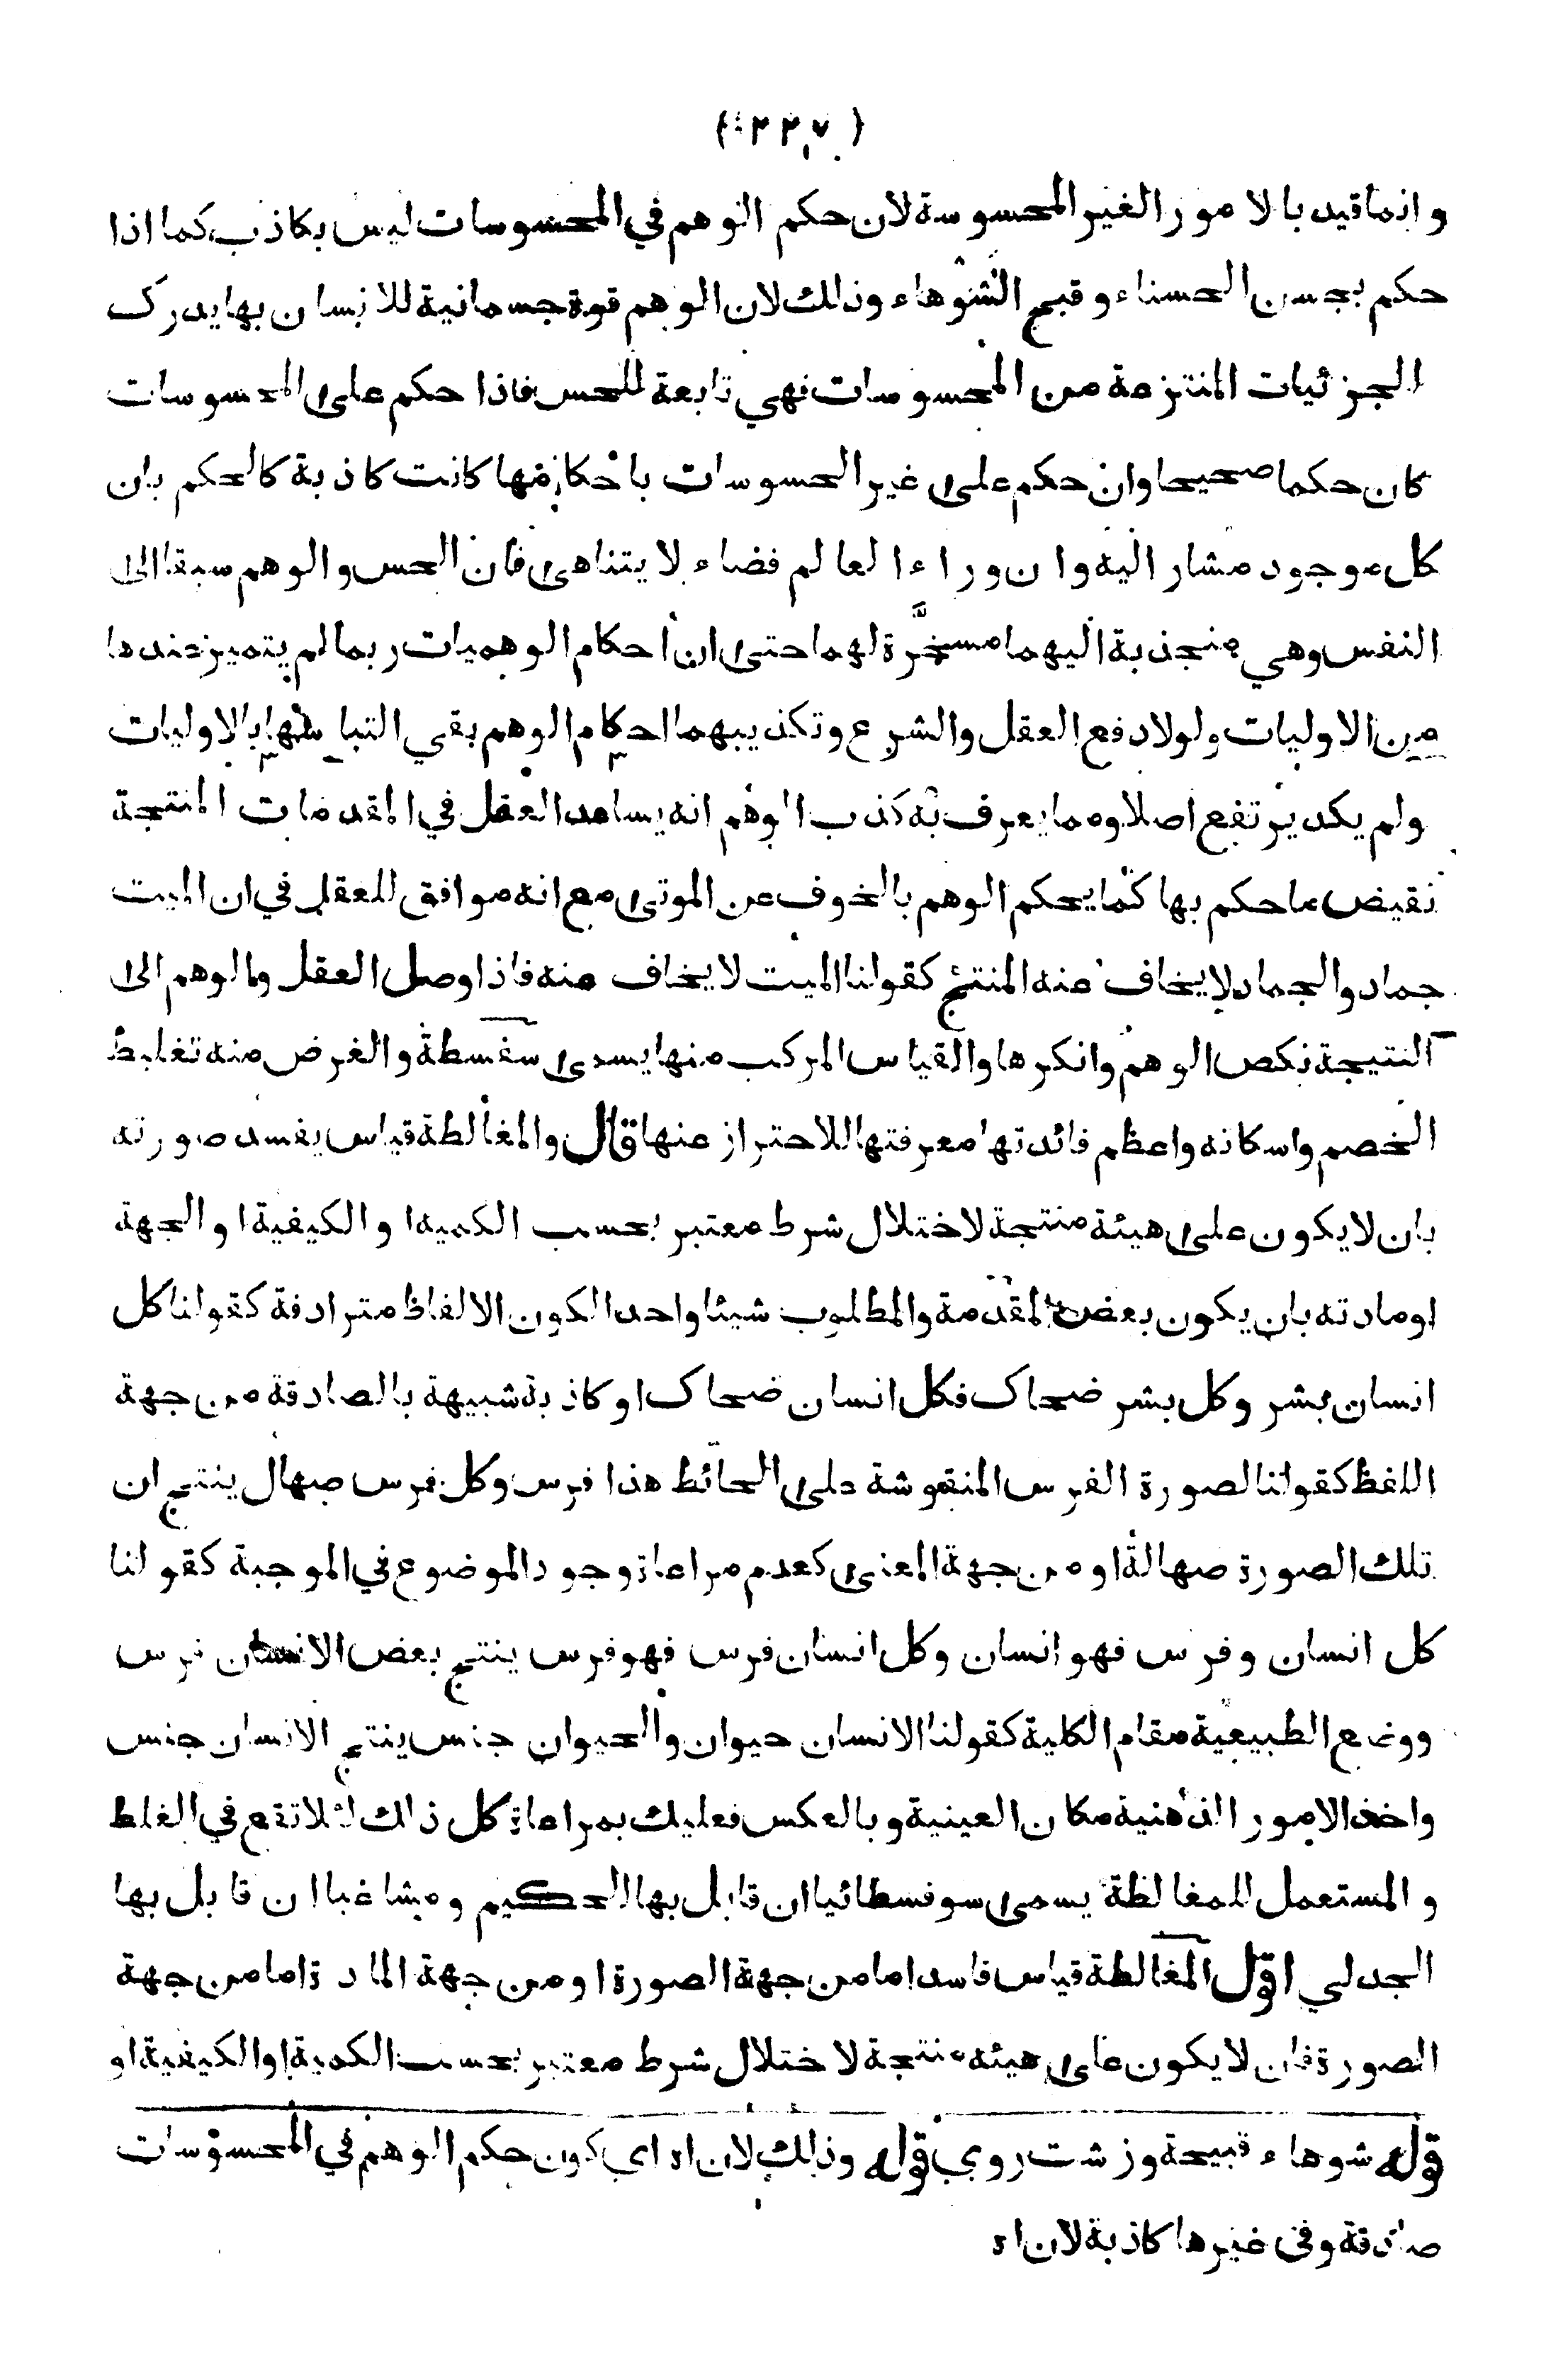 ( ٢٢٧ )
وانما قيد بالامور الغير المحسوسة لان حكم الوهم في المحسوسات ليس بكاذب كما اذا
حكم بحسن الحسناء وقبح الشوهاء وذلك لان الوهم قوة جسمانية للانسان بها يدرك
الجزئيات المنتزعة من المحسوسات فهي تابعة للحس فاذا حكم على المحسوسات
كان حكما صحيحا وان حكم على غير المحسوسات باحكامها كانت كاذبة كالحكم بان
كل موجود مشار اليه وان وراء العالم فضاء لا يتناهى فان الحس والوهم سبقا الى
النفس وهي منجذبة اليهما مسخّرة لهما حتى ان احكام الوهميات ربما لم يتميز عندها
من الاوليات ولولا دفع العقل والشرع وتكذيبهما احكام الوهم بقي التباسها بالاوليات
ولم يكد يرتفع اصلا ومما يعرف به كذب الوهم انه يساعد العقل في المقدمات المنتجة
نقيض ما حكم بها كما يحكم الوهم بالخوف عن الموتى مع انه موافق للعقل في ان الميت
جماد والجماد لا يخاف عنه المنتج كقولنا الميت لا يخاف منه فاذا وصل العقل والوهم الى
النتيجة نكص الوهم وانكرها والقياس المركب منها يسمى سفسطة والغرض منه تغليط
الخصم واسكاته واعظم فائدتها معرفتها للاحتراز عنها قال والمغالطة قياس يفسد صورته
بان لا يكون على هيئة منتجة لاختلال شرط معتبر بحسب الكمية او الكيفية او الجهة
او مادته بان يكون بعض المقدمة والمطلوب شيئا واحدا لكون الالفاظ مترادفة كقولنا كل
انسان بشر وكل بشر ضحاك فكل انسان ضحاك او كاذبة شبيهة بالصادقة من جهة
اللفظ كقولنا لصورة الفرس المنقوشة على الحائط هذا فرس وكل فرس صهال ينتج ان
تلك الصورة صهالة او من جهة المعنى كعدم مراعاة وجود الموضوع في الموجبة كقولنا
كل انسان وفرس فهو انسان وكل انسان فرس فهو فرس ينتج بعض الانسان فرس
ووضع الطبيعية مقام الكلية كقولنا الانسان حيوان والحيوان جنس ينتج الانسان جنس
واخذ الامور الذهنية مكان العينية وبالعكس فعليك بمراعاة كل ذلك لئلا تقع في الغلط
والمستعمل للمغالطة يسمى سوفسطائيا ان قابل بها الحكيم ومشاغبا ان قابل بها
الجدلي اقول المغالطة قياس فاسد اما من جهة الصورة او من جهة المادة اما من جهة
الصورة فان لا يكون على هيئة منتجة لاختلال شرط معتبر بحسب الكمية او الكيفية او
قوله شوهاء قبيحة وزشت روي قوله وذلك لان اه اي كون حكم الوهم في المحسوسات
صادقة وفى غيرها كاذبة لان اه